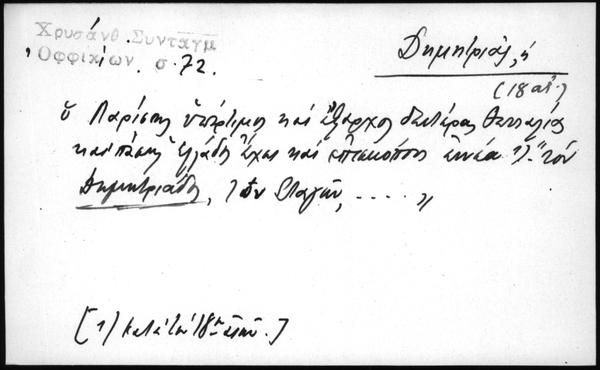 Χρυσάνθ. Συνταγμ
Ὀφφικίων. σ. 72.
Δημητριάς, ἡ
(18 αἰ.)
ὁ Λαρίσης ὑπέρτιμος καὶ ἔξαρχος δευτέρας Θετταλίας
καὶ πάσης Ἑλλάδος ἔχει καὶ ἐπισκόπους ἐννέα 1) "τὸν
Δημητριάδος, τὸν Σταγῶν, ..... "
[1) κατὰ τὸν 18ον αἰῶνα.]